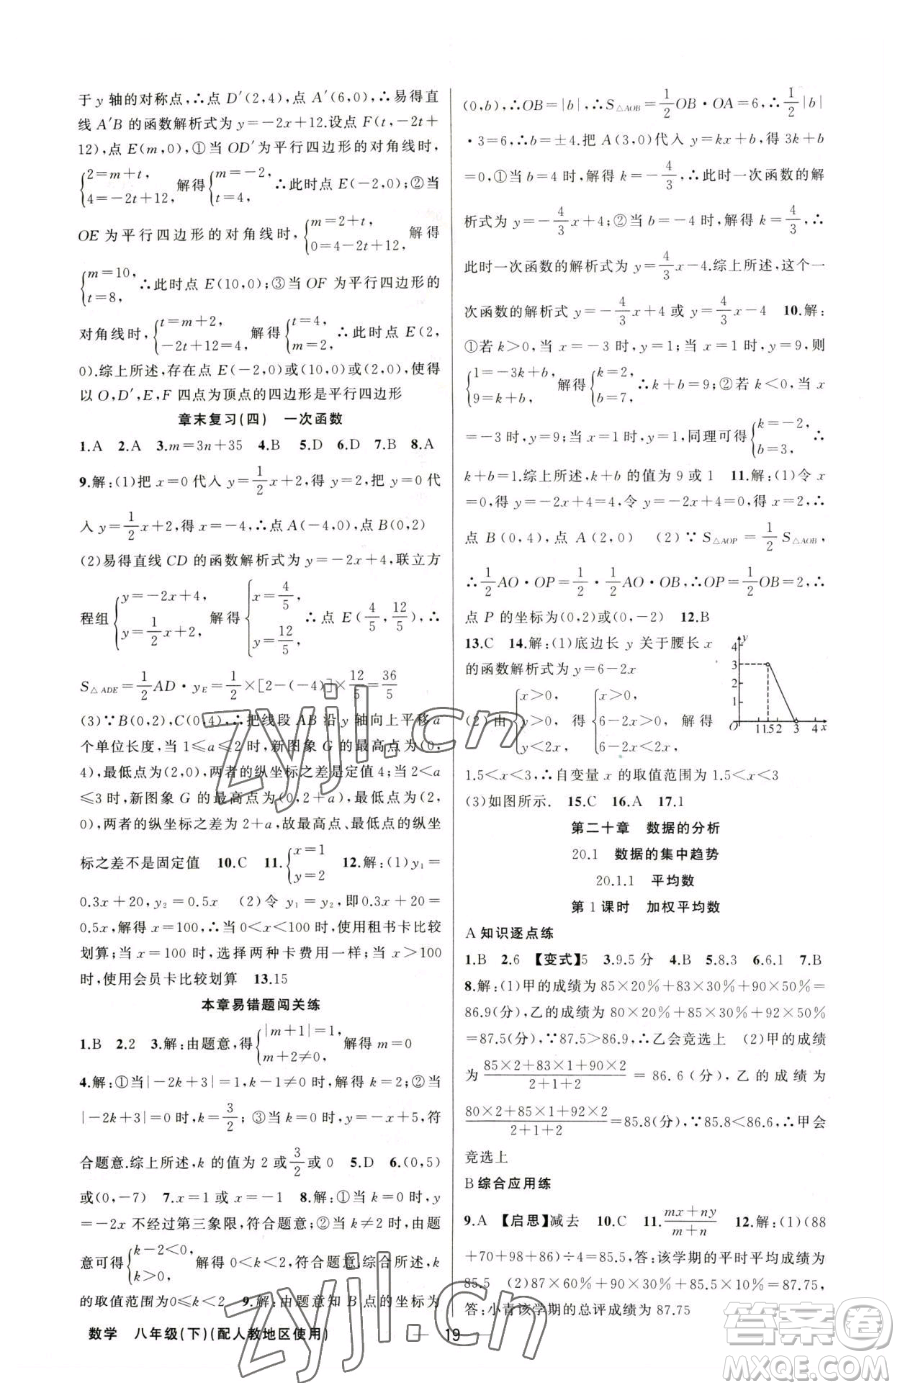 于 y 轴的对称点,∴点 D′(2,4),点 A′(6,0),∴易得直
线 A′B 的函数解析式为 y=-2x+12.设点 F(t,-2t+
12),点 E(m,0),①当 OD′为平行四边形的对角线时,
{2=m+t, 4=-2t+12, 解得{m=-2, t=4, ∴此时点 E(-2,0);②当
OE 为平行四边形的对角线时,{m=2+t, 0=4-2t+12, 解得
{m=10, t=8, ∴此时点 E(10,0);③当 OF 为平行四边形的
对角线时,{t=m+2, -2t+12=4, 解得{t=4, m=2, ∴此时点 E(2,
0).综上所述,存在点 E(-2,0)或(10,0)或(2,0),使得
以 O,D′,E,F 四点为顶点的四边形是平行四边形
章末复习(四) 一次函数
1.A 2.A 3.m=3n+35 4.B 5.D 6.D 7.B 8.A
9.解:(1)把 x=0 代入 y=1/2x+2,得 y=2,把 y=0 代
入 y=1/2x+2,得 x=-4,∴点 A(-4,0),点 B(0,2)
(2)易得直线 CD 的函数解析式为 y=-2x+4,联立方
程组{y=-2x+4, y=1/2x+2, 解得{x=4/5, y=12/5, ∴点 E(4/5,12/5),∴
S△ADE=1/2AD·yE=1/2×[2-(-4)]×12/5=36/5
(3)∵B(0,2),C(0,4),∴把线段 AB 沿 y 轴向上平移 a
个单位长度,当 1≤a≤2 时,新图象 G 的最高点为(0,
4),最低点为(2,0),两者的纵坐标之差是定值 4;当 2<a
≤3 时,新图象 G 的最高点为(0,2+a),最低点为(2,
0),两者的纵坐标之差为2+a,故最高点与最低点的纵坐
标之差不是固定值 10.C 11.{x=1 y=2 12.解:(1)y1=
0.3x+20,y2=0.5x (2)令 y1=y2,即0.3x+20=
0.5x,解得 x=100,∴当 x<100 时,使用租书卡比较
划算;当 x=100 时,选择两种卡费用一样;当 x>100
时,使用会员卡比较划算 13.15
本章易错题闯关练
1.B 2.2 3.解:由题意,得{|m+1|=1, m+2≠0, 解得 m=0
4.解:①当|-2k+3|=1 时,解得 k=1 或 k=2;②当
|-2k+3|=0 时,解得 k=3/2;③当 k=0 时,y=-x+5,符
合题意.综上所述,k 的值为 2 或3/2或 0 5.D 6.(0,5)
或(0,-7) 7.x=1 8.解:①当 k=0 时,一次函数 y=
-2x 不经过第三象限,符合题意;②当 k≠0 时,由题
意可得{k-2<0, k>0, 解得 0<k<2,符合题意.综上所述,k
的取值范围为0≤k<2 9.解:由题意知 B 点的坐标为
(0,b),∴OB=|b|,∴S△AOB=1/2OB·OA=6,∴1/2|b|
·3=6,∴b=±4.把 A(3,0)代入 y=kx+b,得 3k+b
=0,①当 b=4 时,解得 k=-4/3,∴此时一次函数的解
析式为 y=-4/3x+4;②当 b=-4 时,解得 k=4/3,∴
此时一次函数的解析式为 y=4/3x-4.综上所述,这个一
次函数的解析式 y=-4/3x+4 或 y=4/3x-4 10.解:
①若 k>0,当 x=-3 时,y=1,当 x=1 时,y=9,则
{1=-3k+b, 9=k+b, 解得{k=2, b=7, ∴k+b=9;②若 k<0,当 x
=-3 时,y=9,当 x=1 时,y=1,同理可得{k=-2, b=3, ∴
k+b=1.综上所述,k+b 的值为 9 或 1 11.解:(1)令 x
=0,得 y=-2x+4=4,令 y=-2x+4=0,得 x=2,∴
点 B(0,4),点 A(2,0) (2)∵S△AOP=1/2S△AOB,
∴1/2AO·OP=1/2×1/2AO·OB,∴OP=1/2OB=2,∴
点 P 的坐标为(0,2)或(0,-2) 12.B
13.C 14.解:(1)底边长 y 关于腰长 x
的函数解析式为 y=6-2x
(2)由{x>0, y>0, y<2x, 得{x>0, 6-2x>0, 6-2x<2x, 解得
1.5<x<3,∴自变量 x 的取值范围为 1.5<x<3
(3)如图所示. 15.C 16.A 17.1
y
4
3
2
1
O
1 1.5 2 3 4 x
第二十章 数据的分析
20.1 数据的集中趋势
20.1.1 平均数
第 1 课时 加权平均数
A 知识逐点练
1.B 2.6 【变式】5 3.9.5 分 4.B 5.8.3 6.6.1 7.B
8.解:(1)甲的成绩为 85×20%+83×30%+90×50%=
86.9(分),乙的成绩为 80×20%+85×30%+92×50%
=87.5(分),∵87.5>86.9,∴乙会竞选上 (2)甲的成绩为
(85×2+83×1+90×2)/(2+1+2)=86.6(分),乙的成绩为
(80×2+85×1+92×2)/(2+1+2)=85.8(分),∵85.8<86.6,∴甲会
竞选上
B 综合应用练
9.A 【启思】减去 10.C 11.(mx+ny)/(m+n) 12.解:(1)(88
+70+98+86)÷4=85.5,答:该学期的平时平均成绩为
85.5 (2)85.5×10%+85×30%+87×60%=87.75,
答:小青该学期的总评成绩为 87.75
数学 八年级(下)(配人教地区使用) — 19 —
zyjl.cn
zyjl.cn
答案圈
MXQE.COM